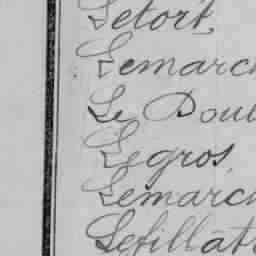 Letort
Lemarch
Le Poul
Legros
Lemarch
Lefillat